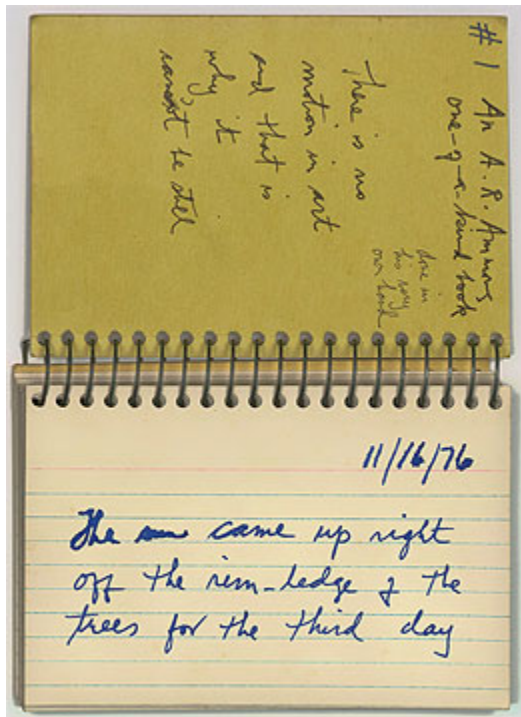 #1 An A.R. Ammons
one-of-a-kind book
done in
his very
own hand
There is no
motion in art
and that is
why it
cannot be still
11/16/76
The sun came up right
off the rim-ledge of the
trees for the third day